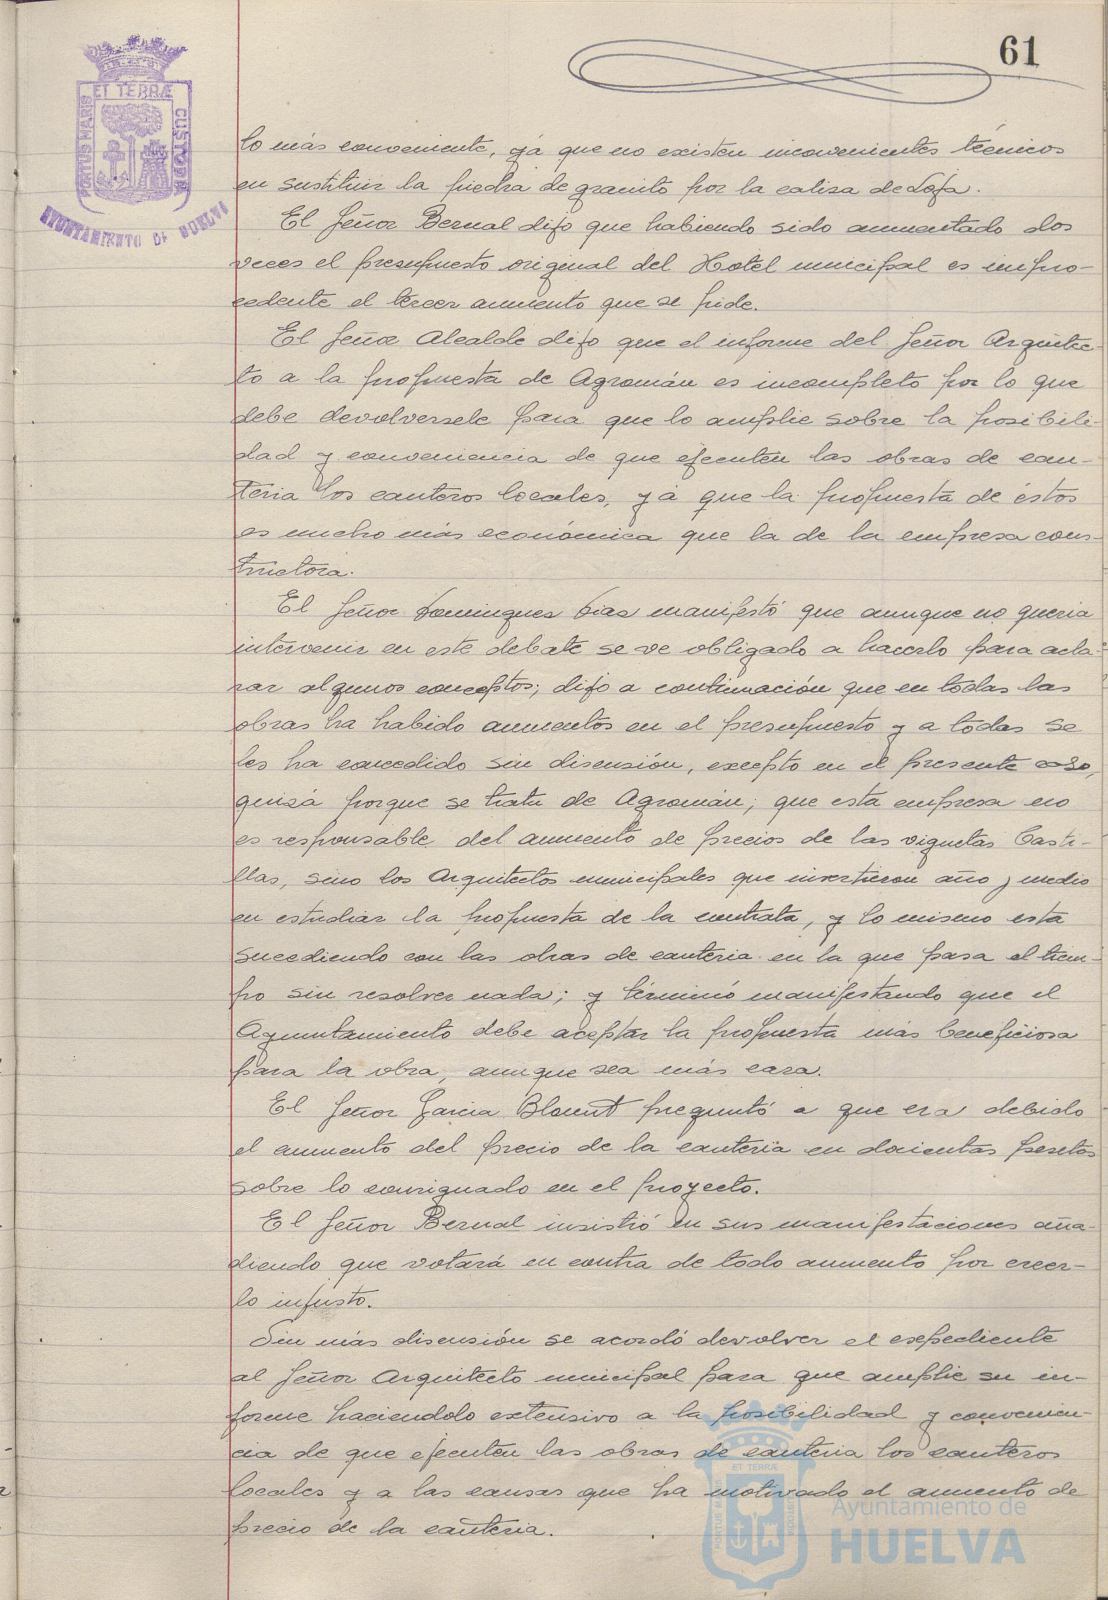 61
PORTUS MARIS
ET TERRÆ
CUSTODIA
AYUNTAMIENTO DE HUELVA
lo más conveniente, yá que no existen inconvenientes técnicos
en sustituir la piedra de granito por la caliza de Loja.
El Señor Bernal dijo que habiendo sido aumentado dos
veces el presupuesto original del Hotel municipal es impro-
cedente el tercer aumento que se pide.
El Señor Alcalde dijo que el informe del Señor Arquitec-
to a la propuesta de Agromán es incompleto por lo que
debe devolversele para que lo amplie sobre la posibili-
dad y conveniencia de que ejecuten las obras de can-
teria los canteros locales, yá que la propuesta de éstos
es mucho más económica que la de la empresa cons-
tructora.
El Señor Dominguez Dias manifestó que aunque no queria
intervenir en este debate se ve obligado a hacerlo para acla-
rar algunos conceptos; dijo a continuación que en todas las
obras ha habido aumentos en el presupuesto y a todas se
les ha concedido sin discusión, excepto en el presente caso,
quizá porque se trata de Agromán; que esta empresa no
es responsable del aumento de precios de las viguetas Casti-
llas, sino los Arquitectos municipales que invertieron año y medio
en estudiar la propuesta de la contrata, y lo mismo esta
sucediendo con las obras de canteria en la que pasa el tiem-
po sin resolver nada; y términó manifestando que el
Ayuntamiento debe aceptar la propuesta más beneficiosa
para la obra, aunque sea más cara.
El Señor Garcia Blount preguntó a que era debido
el aumento del precio de la canteria en docientas pesetas
sobre lo consignado en el proyecto.
El Señor Bernal insistió en sus manifestaciones aña-
diendo que votará en contra de todo aumento por creer-
lo injusto.
Sin más discusión se acordó devolver el expediente
al Señor Arquitecto municipal para que amplie su in-
forme haciendolo extensivo a la posibilidad y convenien-
cia de que ejecuten las obras de canteria los canteros
locales y a las causas que ha motivado el aumento de
precio de la canteria.
PORTUS MARIS
ET TERRÆ
CUSTODIA
Ayuntamiento de
HUELVA